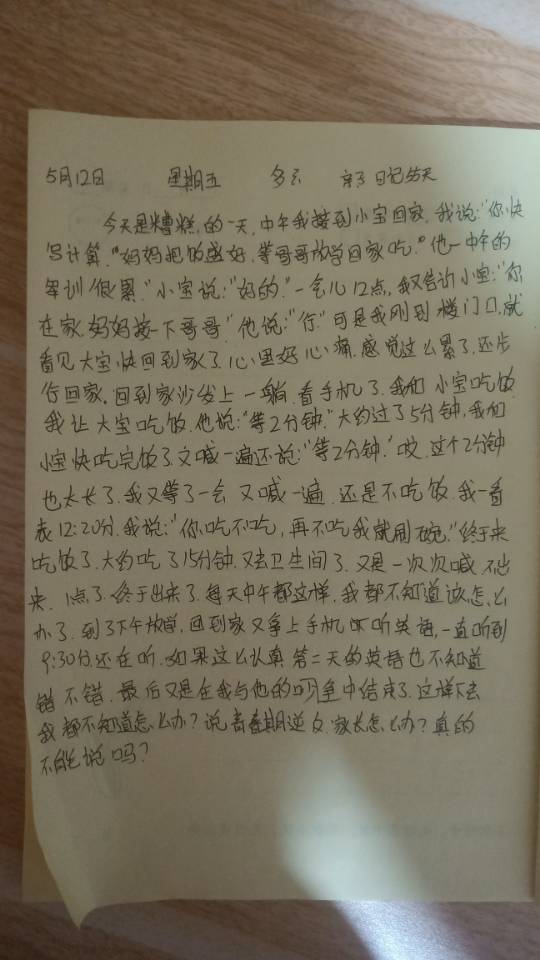 5月12日 星期五 多云 亲子日记45天
今天是糟糕的一天,中午我接到小宝回家,我说:"你快
写计算,"妈妈把饭盛好,等哥哥放学回家吃."他一中午的
军训很累."小宝说:"好的."一会儿12点,我又告诉小宝:"你
在家,妈妈接一下哥哥"他说:"行"可是我刚到楼门口,就
看见大宝快回到家了,心里好心痛,感觉这么累了,还步
行回家,回到家沙发上一躺,看手机了,我们小宝吃饭
我让大宝吃饭,他说:"等2分钟."大约过了5分钟,我们
小宝快吃完饭了,又喊一遍还说:"等2分钟."哎,这个2分钟
也太长了,我又等了一会又喊一遍,还是不吃饭,我一看
表12:20分,我说:"你吃不吃,再不吃我就刷碗."终于来
吃饭了,大约吃了15分钟,又去卫生间了,又是一次次喊,不出
来,1点了,终于出来了,每天中午都这样,我都不知道该怎么
办了,到了下午放学,回到家又拿上手机听英语,一直听到
9:30分还在听,如果这么认真第二天的英语也不知道
错不错,最后又是在我与他的争中结束了,这样下去
我都不知道怎么办?说青春期逆反,家长怎么办?真的
不能说吗?